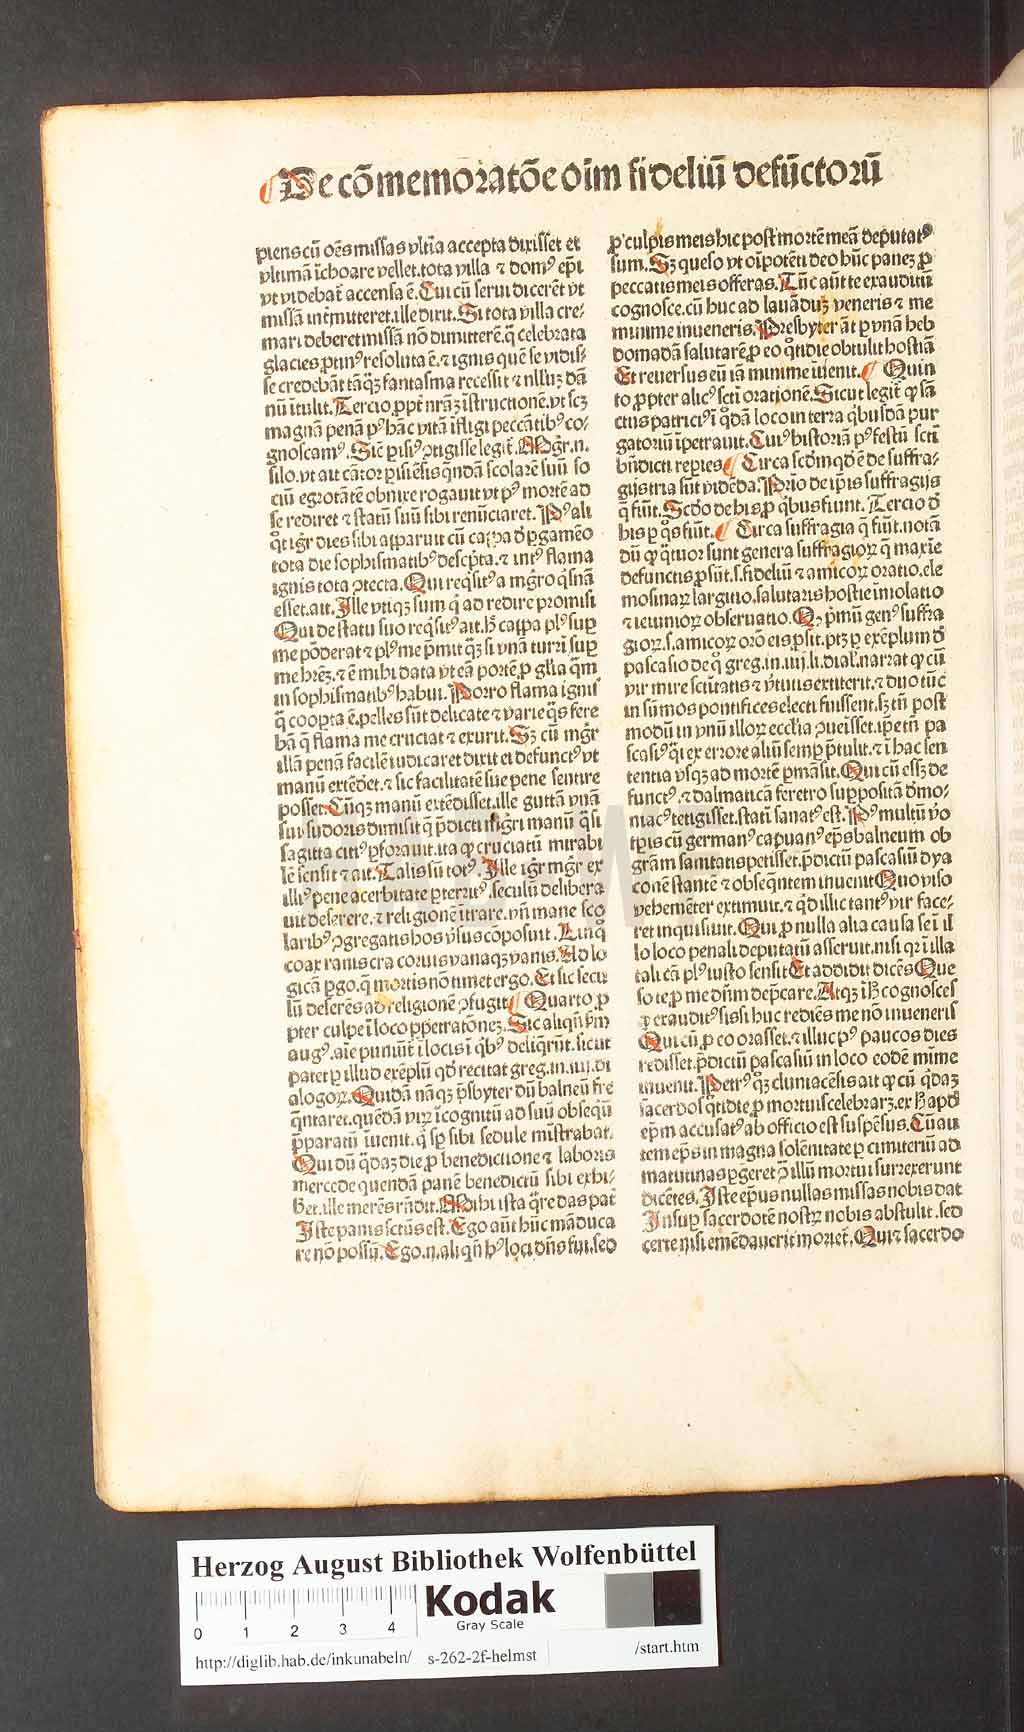 ¶ De cōmemoratōe oīm fideliū defūctorū
piens cū oēs missas vltīa accepta dixisset et
vltimā īchoare vellet. tota villa ⁊ domꝰ ep̄i
vt videbat̄ accensa ē. Cui cū serui dicerēt vt
missā intm̄itteret. ille dixit. Si tota villa cre⸗
mari deberet missā nō dimitterē. q̄ celebrata
glacies ꝓtinꝰ resoluta ē. ⁊ ignis quē se vidis⸗
se credebāt tāq̄ꝫ fantasma recessit ⁊ nlluꝫ dā
nū ītulit. Tercio ꝓpt̄ nrāꝫ īstructionē. vt scꝫ
magnā penā pꝰ hāc vitā īfligi peccātibꝰ co⸗
gnoscamꝰ. Sic̄ ꝑisiꝰ ꝯtigisse legit̄. Mgr̄. n.
silo. vt ait cātor ꝑisiēsis q̄ndā scolarē suū so
ciū egrotātē obnixe rogauit vt pꝰ mortē ad
se rediret ⁊ statū suū sibi renūciaret. Pꝰ ali
q̄t igr̄ dies sibi apparuit cū cappa d̄ ꝑgamēo
tota die sophismatibꝰ descp̄ta. ⁊ intꝰ flama
ignis tota ꝯtecta. Qui reqͥsitꝰ a mgr̄o qͥsnā
esset. ait. Ille vtiqꝫ sum qͥ ad redire promisi
Qui de statu suo reqͥsitꝰ ait. h̄ cappa plꝰ suꝑ
me pōderat ⁊ plꝰ me p̄mit q̄ꝫ si vnā turrī suꝑ
me hr̄eꝫ. ⁊ ē mihi data vt eā portē ꝓ gl̄ia qͣm
in sophismatibꝰ habui. Porro flama ignis
q̄ coopta ē. pelles sūt delicate ⁊ varie q̄s fere
bā q̄ flama me cruciat ⁊ exurit. Sꝫ cū mgr̄
illā penā facilē iudicaret dixit ei defunctꝰ vt
manū extēdet. ⁊ sic facilitatē sue pene sentire
posset. Cūqꝫ manū extēdisset. ille guttā vnā
sui sudoris dimisit q̄ p̄dicti mgr̄i manū qͣsi
sagitta citiꝰ ꝑforauit. ita ꝙ cruciatū mirabi
lē sensit ⁊ ait. Talis sū totꝰ. Ille igr̄ mgr̄ ex
illiꝰ pene acerbitate ꝑterritꝰ. seculū delibera
uit deserere. ⁊ religionē ītrare. vn̄ mane sco
laribꝰ ꝯgregatis hos v̄sus cōposuit. Linqͦ
coax ranis cra coruis vanaqꝫ vanis. Ad lo
gicā ꝑgo. q̄ mortis nō timet ergo. Et sic secu
lū deserēs ad religionē ꝯfugit. ¶ Quarto ꝓ
pter culpe ī loco ꝑpetratōneꝫ. Sic aliqn̄ fm̄
augꝰ. aīe puniūt̄ ī locis ī qͥbꝰ deliqͥrūt. sicut
patet ꝑ illud exēplū qd̄ recitat greg. in. iiij. di
alogoꝝ. Quidā nāqꝫ p̄sbyter dū balneū fre
q̄ntaret. quēdā viꝝ īcognitū ad suū obseqū
p̄paratū īuenit. qͥ sꝑ sibi sedule mīstrabat.
Qui dū qͣdaꝫ die ꝓ benedictione ⁊ laboris
mercede quendā panē benedictū sibi exhi⸗
bet. ille merēs rn̄dit. Mihi ista qͣre das pat̄
Iste panis sctūs est. Ego aūt hūc māduca
re nō possū. Ego. n. aliqn̄ hꝰ loci dn̄s fui. sed
ꝓ culpis meis hic post mortē meā deputatꝰ
sum. Sꝫ queso vt oīpotēti deo hūc paneꝫ ꝓ
peccatis meis offeras. Tūc aūt te exauditū
cognosce. cū huc ad lauāduꝫ veneris ⁊ me
minime inueneris. Presbyter āt ꝑ vnā heb
domadā salutarē ꝓ eo qͦtidie obtulit hostiā
Et reuersus eū iā minime īuenit. ¶ Quin
to ꝓpter alicꝰ scti orationē. Sicut legit̄ ꝙ sā
ctus patriciꝰ ī qͦdā loco in terra qͥbusdā pur
gatoriū īpetrauit. Cuiꝰ historiā pꝰ festū scti
bn̄dicti reperies. ¶ Circa scd̄m qd̄ ē de suffra⸗
gijs tria sūt vidēda. Prīo de ip̄is suffragijs
q̄ fiūt. Scdo de his ꝓ qͥbus fiunt. Tercio d̄
his ꝑ qͦs fiūt. ¶ Circa suffragia q̄ fiūt. notā
dū ꝙ qͣtuor sunt genera suffragioꝝ q̄ maxīe
defunctis ꝓsūt. s. fideliū ⁊ amicoꝝ oratio. ele
mosinaꝝ largitio. salutaris hostie īmolatio
⁊ ieiunioꝝ obseruatio. Qꝫ p̄mū genꝰ suffra
gioꝝ. s. amicoꝝ orō eis ꝓsit. ptꝫ ꝑ exēplum d̄
pascasio de qͦ greg. in. iiij. li. dial̓. narrat ꝙ cū
vir mire scītatis ⁊ v̄tutis extiterit. ⁊ duo tūc
in sūmos pontifices electi fuissent. sꝫ tn̄ post
modū in vnū illoꝝ ecclīa ꝯueīsset. ip̄e tn̄ pa
scasiꝰ qͥ ex errore aliū semꝑ p̄tulit. ⁊ ī hac sen
tentia vsqꝫ ad mortē ꝑmāsit. Qui cū esꝫ de
functꝰ. ⁊ dalmaticā feretro suppositā d̄mo⸗
niacꝰ tetigisset. stati sanatꝰ est. Pꝰ multū v̄o
tp̄is cū germanꝰ capuanꝰ ep̄s balneum ob
grām sanitatis petisset. p̄dictū pascasiū dya
conē stantē ⁊ obseqͥntem inuenit. Quo viso
vehemēter extimuit. ⁊ qͥd illic tantꝰ vir face⸗
ret inquisiuit. Qui ꝓ nulla alia causa se ī il
lo loco penali deputatū asseruit. nisi qꝛ ī illa
tali cā plꝰ iusto sensit. Et addidit dicēs. Que
so te ꝓ me dn̄m dep̄care. Atqꝫ ī h̄ cognosces
ꝙ exauditꝰ sis. si huc rediēs me nō inueneris
Qui cū ꝓ eo orasset. ⁊ illuc pꝰ paucos dies
redisset. p̄dictū pascasiū in loco eodē mīme
inuenit. Petrꝰ qͦꝫ cluniacēsis ait ꝙ cū qͥdaꝫ
sacerdos qͦtidie ꝓ mortuis celebraꝝ. ex h̄ apd̓
ep̄m accusatꝰ ab officio est suspēsus. Cū au
tem ep̄s in magna solēnitate ꝑ cimiteriū ad
matutinas ꝑgeret ꝯ illū mortui surrexerunt
dicētes. Iste ep̄us nullas missas nobis dat
Insuꝑ sacerdotē nostꝝ nobis abstulit. sed
certe nisi emēdauerit moriet̄. Qui ⁊ sacerdo
Herzog August Bibliothek Wolfenbüttel
0 1 2 3 4
Kodak
Gray Scale
http://diglib.hab.de/inkunabeln/ s-262-2f-helmst /start.htm